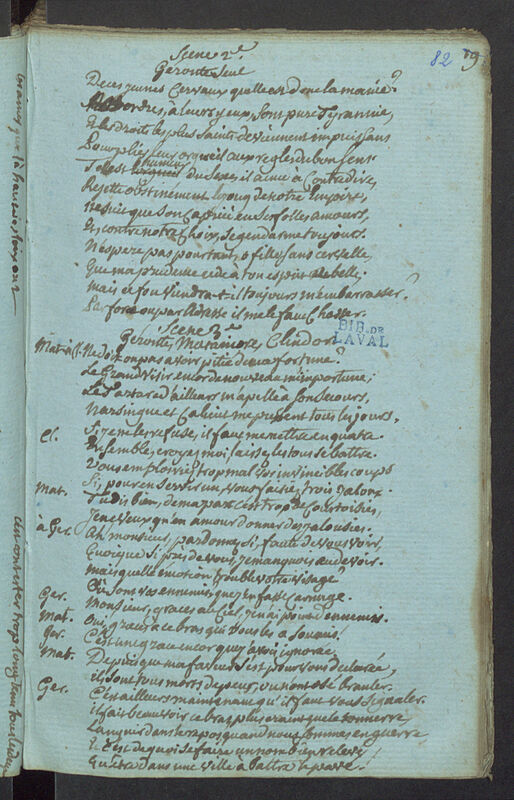 82
79
Scene 2.e
Geronte Seul
De ces jeunes Cerveaux quelle est donc la manie?
ordres, à leurs yeux, sont pure Tyrannie,
Et les droits les plus Saints deviennent impuissans
Pour plier leur orgueil aux regles du bon sens.
Telle est humeur du Sexe, il aime à Contredire,
Rejette obstinément le joug de notre Empire,
Ne suit que son Caprice en ses folles amours,
Et, contre notre Choix, se gendarme toujours.
N'espere pas pourtant, o fille sans cervelle,
Que ma prudence cede à ton esprit rebelle;
mais ce fou viendra-t-il toujours m'embarrasser?
Par force ou par adresse il me le faut Chasser.
Scene 3.e
Geronte, Matamore, Clindor.
BIB. DE LAVAL
Mat. à Cl. Ne doit on pas avoir pitié de ma fortune?
Le Grand Visir encor de nouveau m'importune;
Le Tartare d'ailleurs m'apelle à son Secours,
Narsingue et Calicut me pressent tous les jours.
Si je ne les refuse, il faut me mettre en quatre.
Cl. Ensemble, croyez moi, laissez les tous se battre.
Vous emploiriez trop mal vos invincibles coups
Si, pour en servir un, vous faisiez trois Jaloux.
Mat. Tu dis bien, de ma part c'est trop de Courtoisies,
Je ne veux qu'en amour donner des jalousies.
à Ger. Ah monsieur, pardonnez si, faute de vous voir,
Quoique si près de vous, je manquois au devoir.
mais quelle émotion trouble votre visage
Où sont vos ennemis, que j'en fasse carnage.
Ger. Monsieur, graces au Ciel, je n'ai point d'ennemis.
Mat. Oui, graces à ce bras qui vous les a Soumis!
Ger. C'est une grace encor que j'avois ignorée.
Mat. Depuis que ma faveur s'est pour vous declarée,
ils sont tous morts de peur, ou n'ont osé branler.
Ger. C'est ailleurs maintenant qu'il faut vous Signaler.
il fait beau voir ce bras plus craint que le tonnerre,
Languir dans le repos quand nous sommes en guerre
Et c'est de quoi se faire un nom bien relevé
Qu'être dans une Ville à battre le pavé!